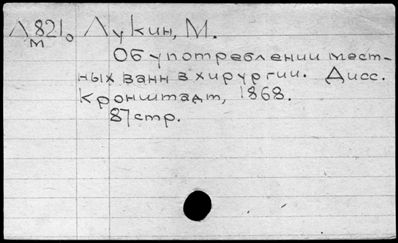 Л821о Лукин, М.
м
Об употреблении мест-
ных ванн в хирургии. Дисс.
Кронштадт, 1868.
87 стр.